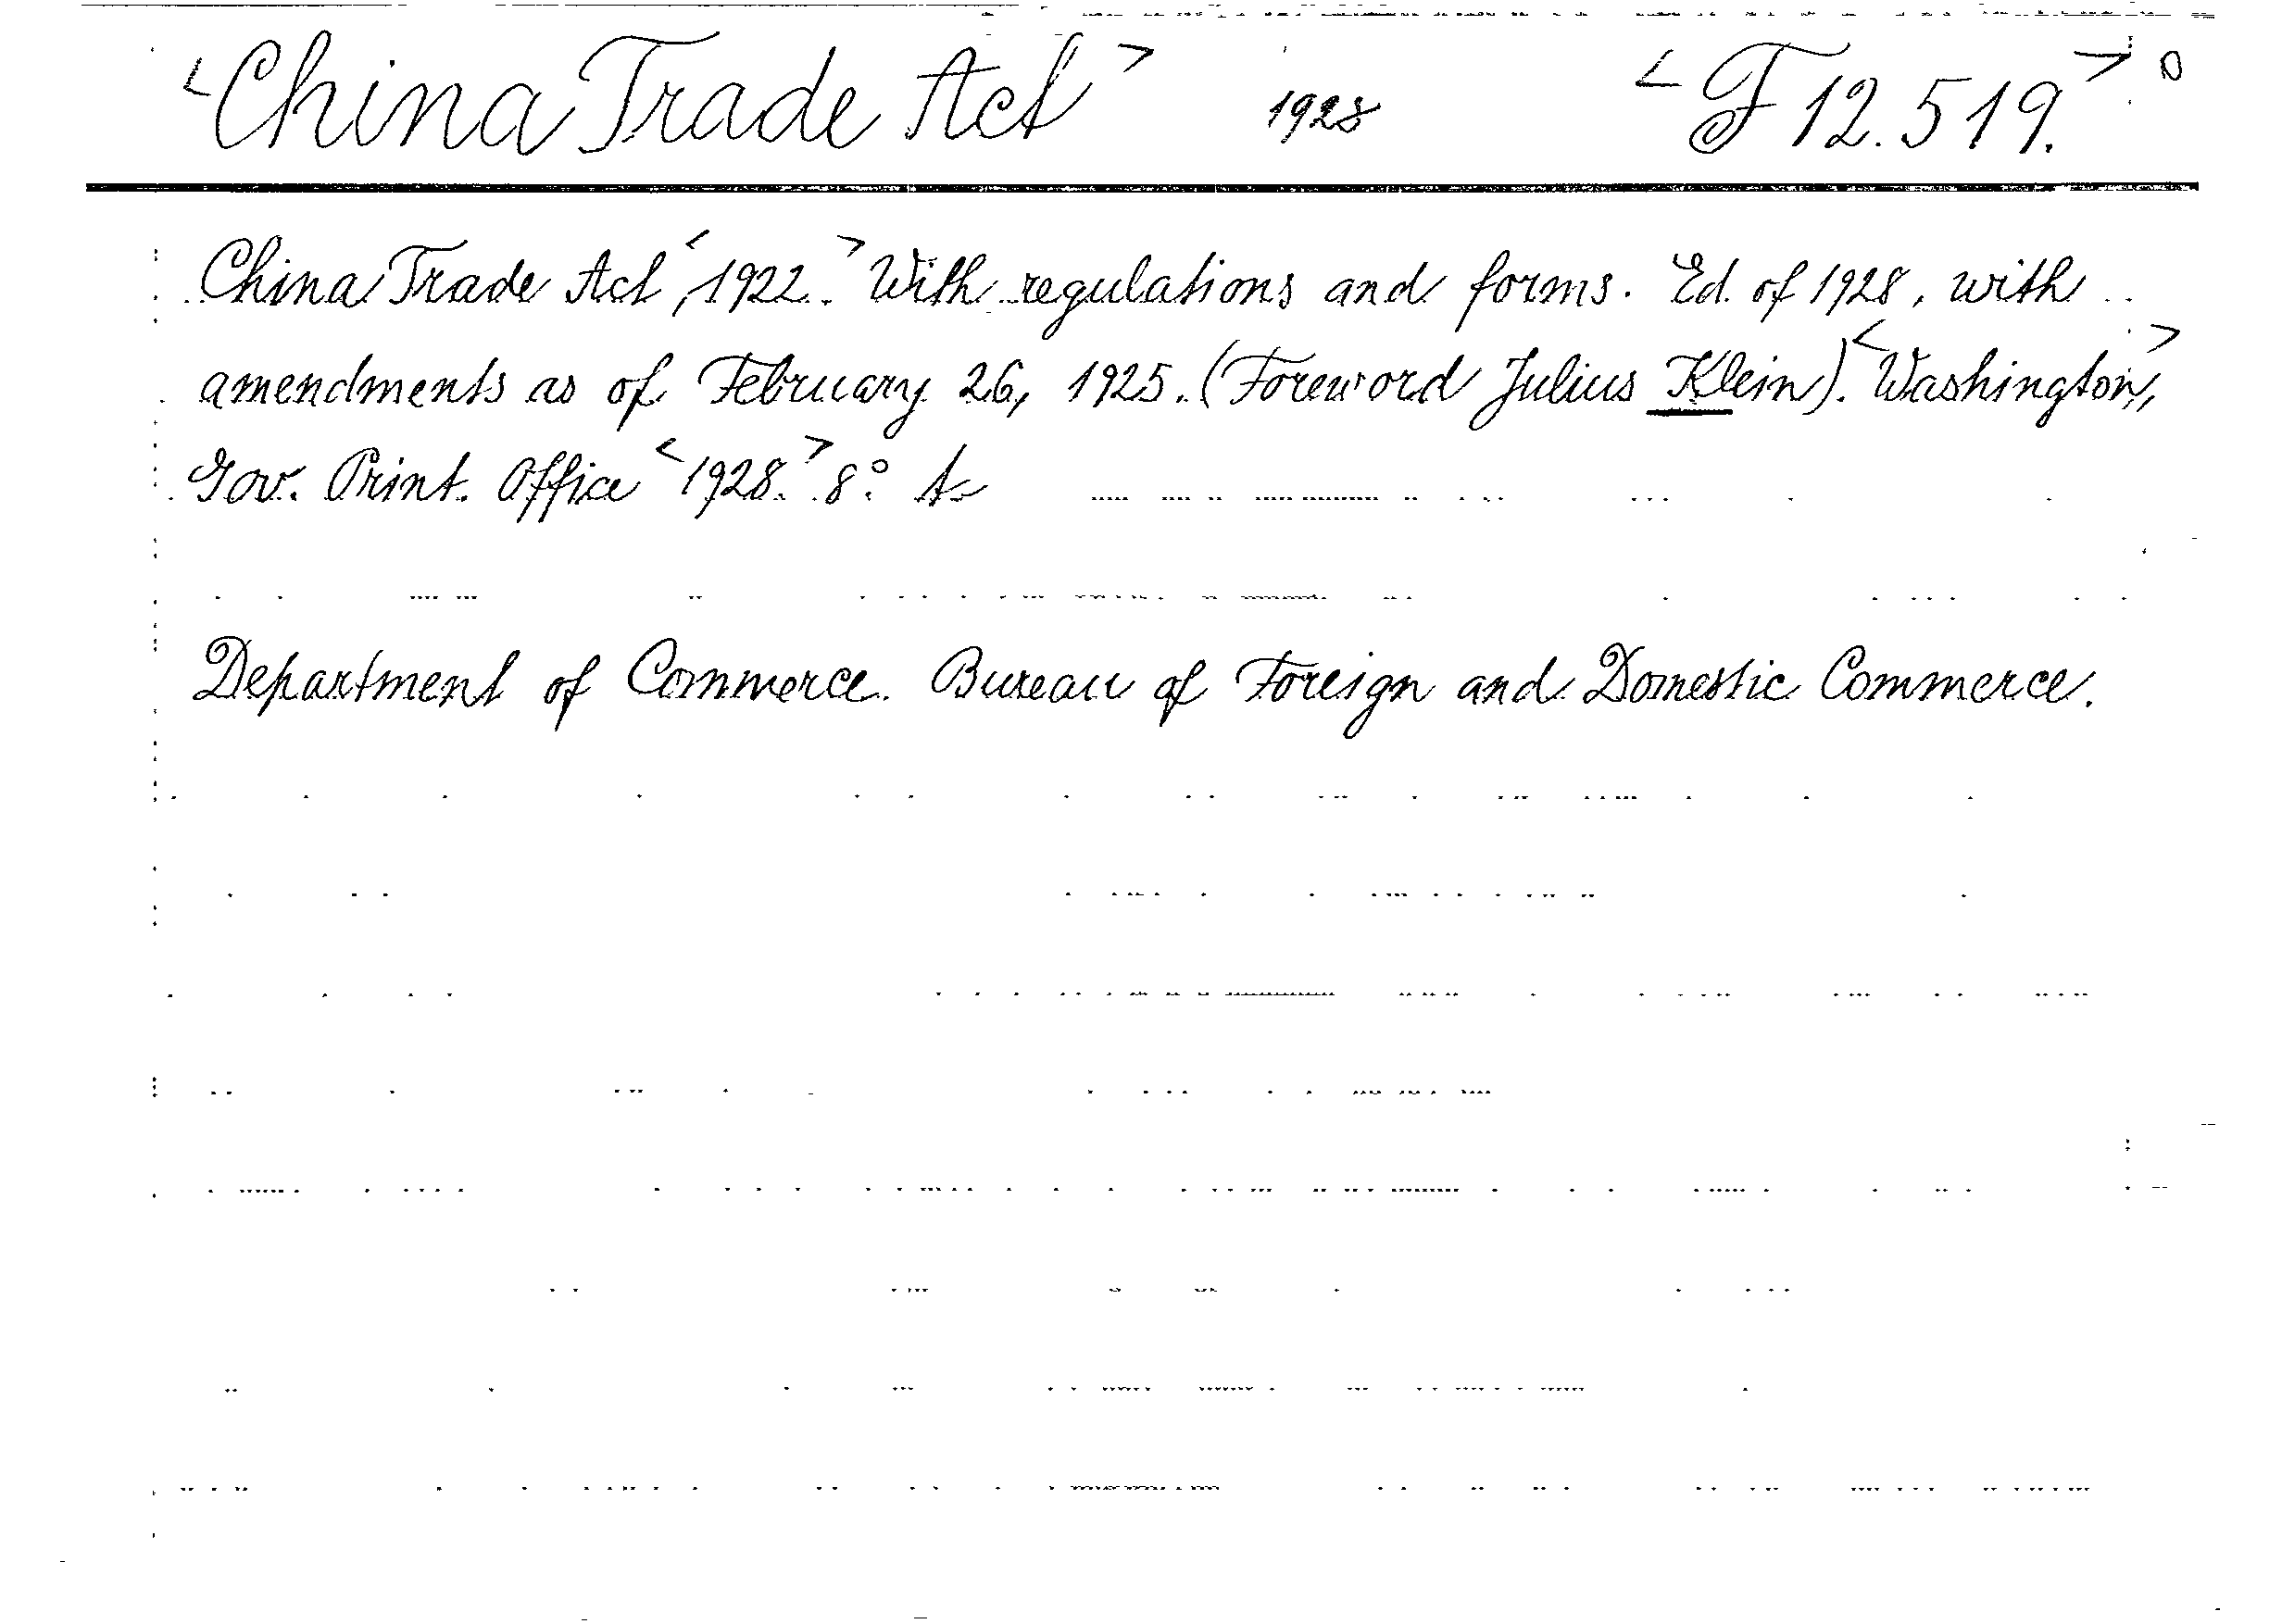 <China Trade Act> 1928 <F 12.519.> 0
China Trade Act, <1922.> With regulations and forms. Ed. of 1928, with
amendments as of February 26, 1925. (Foreword Julius Klein). <Washington,>
Gov. Print. Office <1928.> 8°.
Department of Commerce. Bureau of Foreign and Domestic Commerce.